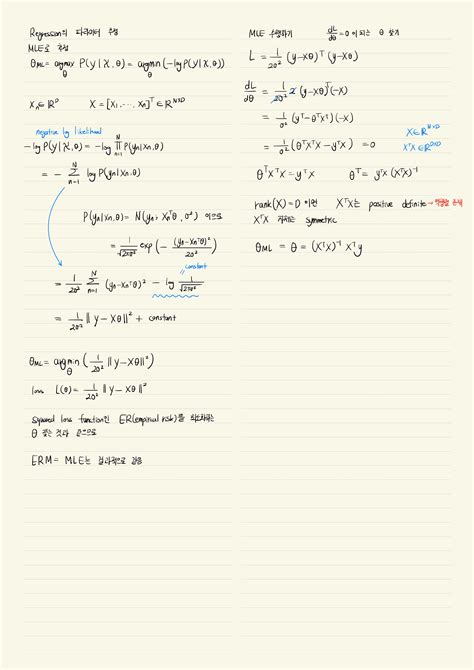 Regression의 파라미터 추정
MLE로 추정
θ_ML = argmax_θ P(y|X,θ) = argmin_θ (-log P(y|X,θ))
x_n ∈ ℝ^D   X = [x_1, ..., x_n]^T ∈ ℝ^(N×D)
negative log likelihood
-log P(y|X,θ) = -log ∏_(n=1)^N P(y_n|x_n,θ)
= - Σ_(n=1)^N log P(y_n|x_n,θ)
P(y_n|x_n,θ) = N(y_n; x_n^Tθ, σ²) 이므로
= 1/√(2πσ²) exp(- (y_n-x_n^Tθ)²/2σ²)
constant
= 1/2σ² Σ_(n=1)^N (y_n-x_n^Tθ)² - log 1/√(2πσ²)
= 1/2σ² ||y-Xθ||² + constant
θ_ML = argmin_θ (1/2σ² ||y-Xθ||²)
loss L(θ) = 1/2σ² ||y-Xθ||²
Squared loss function인 ER(empirical risk)를 최소화하는
θ 찾는 것과 같으므로
ERM = MLE는 결과적으로 같음
MLE 수행하기   dL/dθ = 0 이 되는 θ 찾기
L = 1/2σ² (y-Xθ)^T (y-Xθ)
dL/dθ = 1/2σ² 2(y-Xθ)^T(-X)
= 1/σ² (y^T-θ^TX^T)(-X)
= 1/σ² (θ^TX^TX-y^TX) = 0
X ∈ ℝ^(N×D)
X^TX ∈ ℝ^(D×D)
θ^TX^TX = y^TX   θ^T = y^TX(X^TX)^-1
rank(X) = D 이면 X^TX는 positive definite → 역행렬 존재
X^TX 자체는 symmetric
θ_ML = θ = (X^TX)^-1 X^Ty